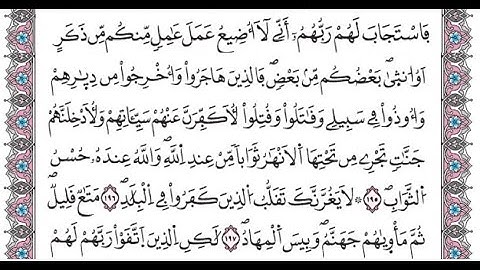 فَاسْتَجَابَ لَهُمْ رَبُّهُمُۥٓ أَنِّے لَآ أُضِيعُ عَمَلَ عَٰمِلٖ مِّنكُم مِّن ذَكَرٍ
اَوُ ا۟نث۪يٰۖ بَعْضُكُم مِّنۢ بَعْضٖۖ فَالذِينَ هَاجَرُواْ وَأُخْرِجُواْ مِن دِيٰ۪رِهِمْ
وَأُوذُواْ فِے سَبِيلِے وَقَٰتَلُواْ وَقُتِلُواْ لَأُكَفِّرَنَّ عَنْهُمْ سَيِّـَٔاتِهِمْ وَلَأُدْخِلَنَّهُمْ
جَنَّٰتٖ تَجْرِے مِن تَحْتِهَا اَ۬لَانْهَٰرُ ثَوَاباٗ مِّنْ عِندِ اِ۬للَّهِۖ وَاللَّهُ عِندَهُۥ حُسْنُ
اُ۬لثَّوَابِۖ ١٩٥ ۞ لَا يَغُرَّنَّكَ تَقَلُّبُ اُ۬لذِينَ كَفَرُواْ فِے اِ۬لْبِلَٰدِۖ ١٩٦ مَتَٰعٞ قَلِيلٞۖ
ثُمَّ مَأْو۪يٰهُمْ جَهَنَّمُۖ وَبِيسَ اَ۬لْمِهَادُۖ ١٩٧ لَٰكِنِ اِ۬لذِينَ اَ۪تَّقَوْاْ رَبَّهُمْ لَهُمْ